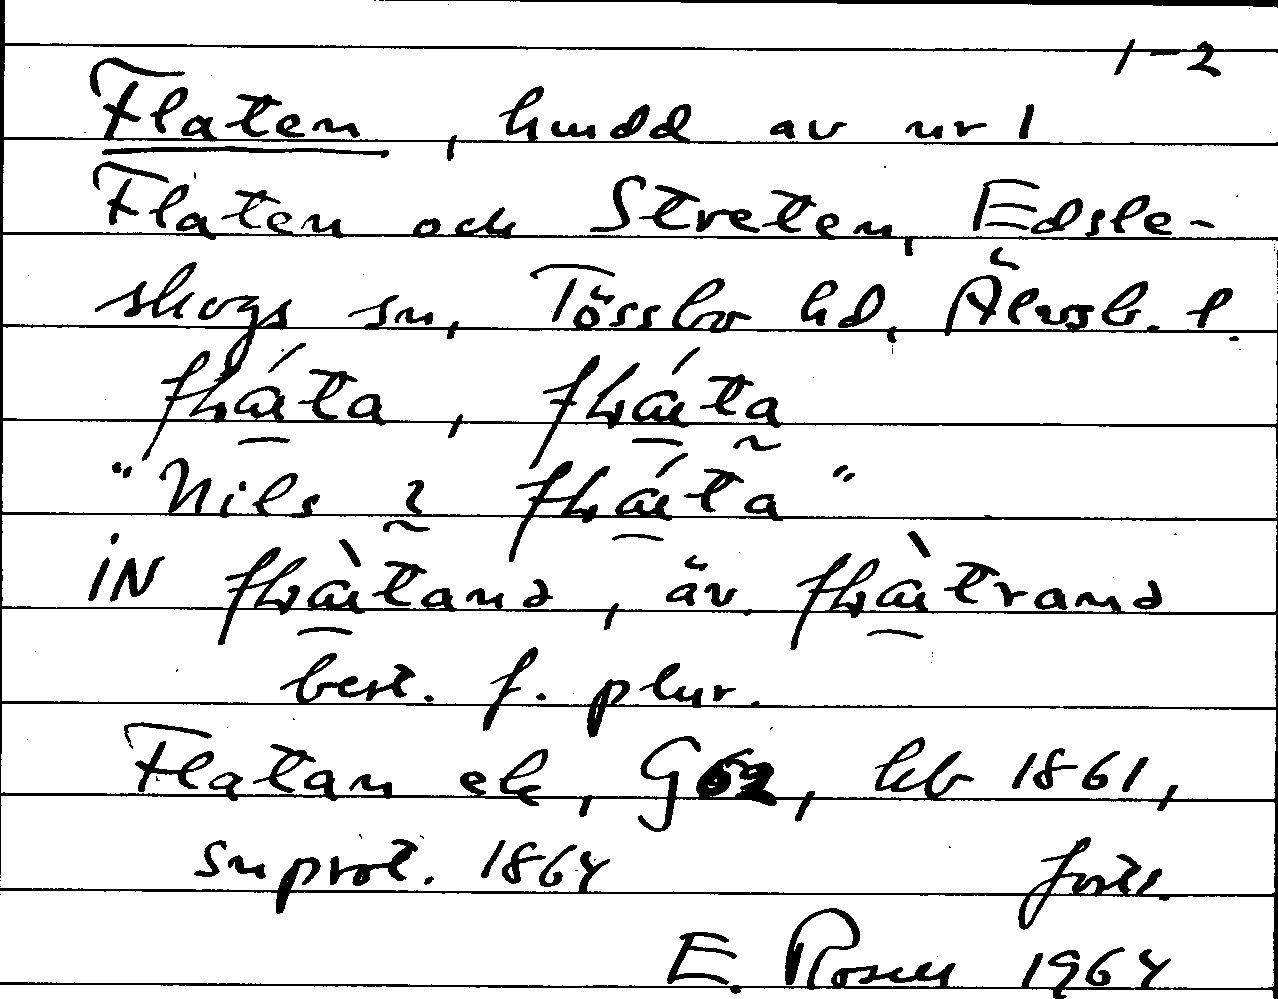 1-2
Flaten, hmdd av nr 1
Flaten och Streten, Edsle-
skogs sn, Tössbo hd, Älvsb. l.
flɷ́ta, flɷ́ta
"Nils ı flɷ́ta"
iN flɷ̀tanə, äv. flɷ̀tranə
best. f. plur.
Flatan ek, G62, kb 1861,
snprot. 1864
forts.
E. Rosell 1964